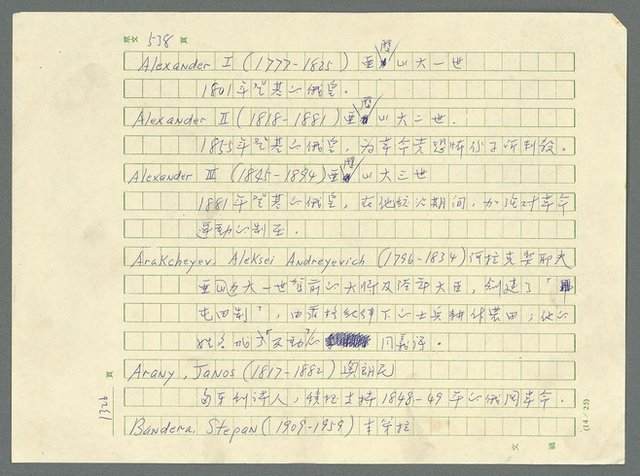 原文 538 頁
Alexander I (1777-1825) 亞歷山大一世
1801年登基的俄皇。
Alexander II (1818-1881) 亞歷山大二世.
1855年登基的俄皇，為革命黨恐怖份子所刺殺。
Alexander III (1845-1894) 亞歷山大三世
1881年登基的俄皇，在他統治期間，加強對革命
運動的制壓。
Arakcheyev, Aleksei Andreyevich (1796-1834) 阿拉克契耶夫
亞歷山大一世前的大將及陸軍大臣，創建了「軍
屯田制」，由嚴格紀律下的士兵耕作農田；他的
姓名成了「反動」的同義詞。
Arany, Janos (1817-1882) 奧朗尼
匈牙利詩人，積極支持1848-49年的俄國革命.
Bandera, Stepan (1909-1959)
頁 1326
(14/25)
文 稿